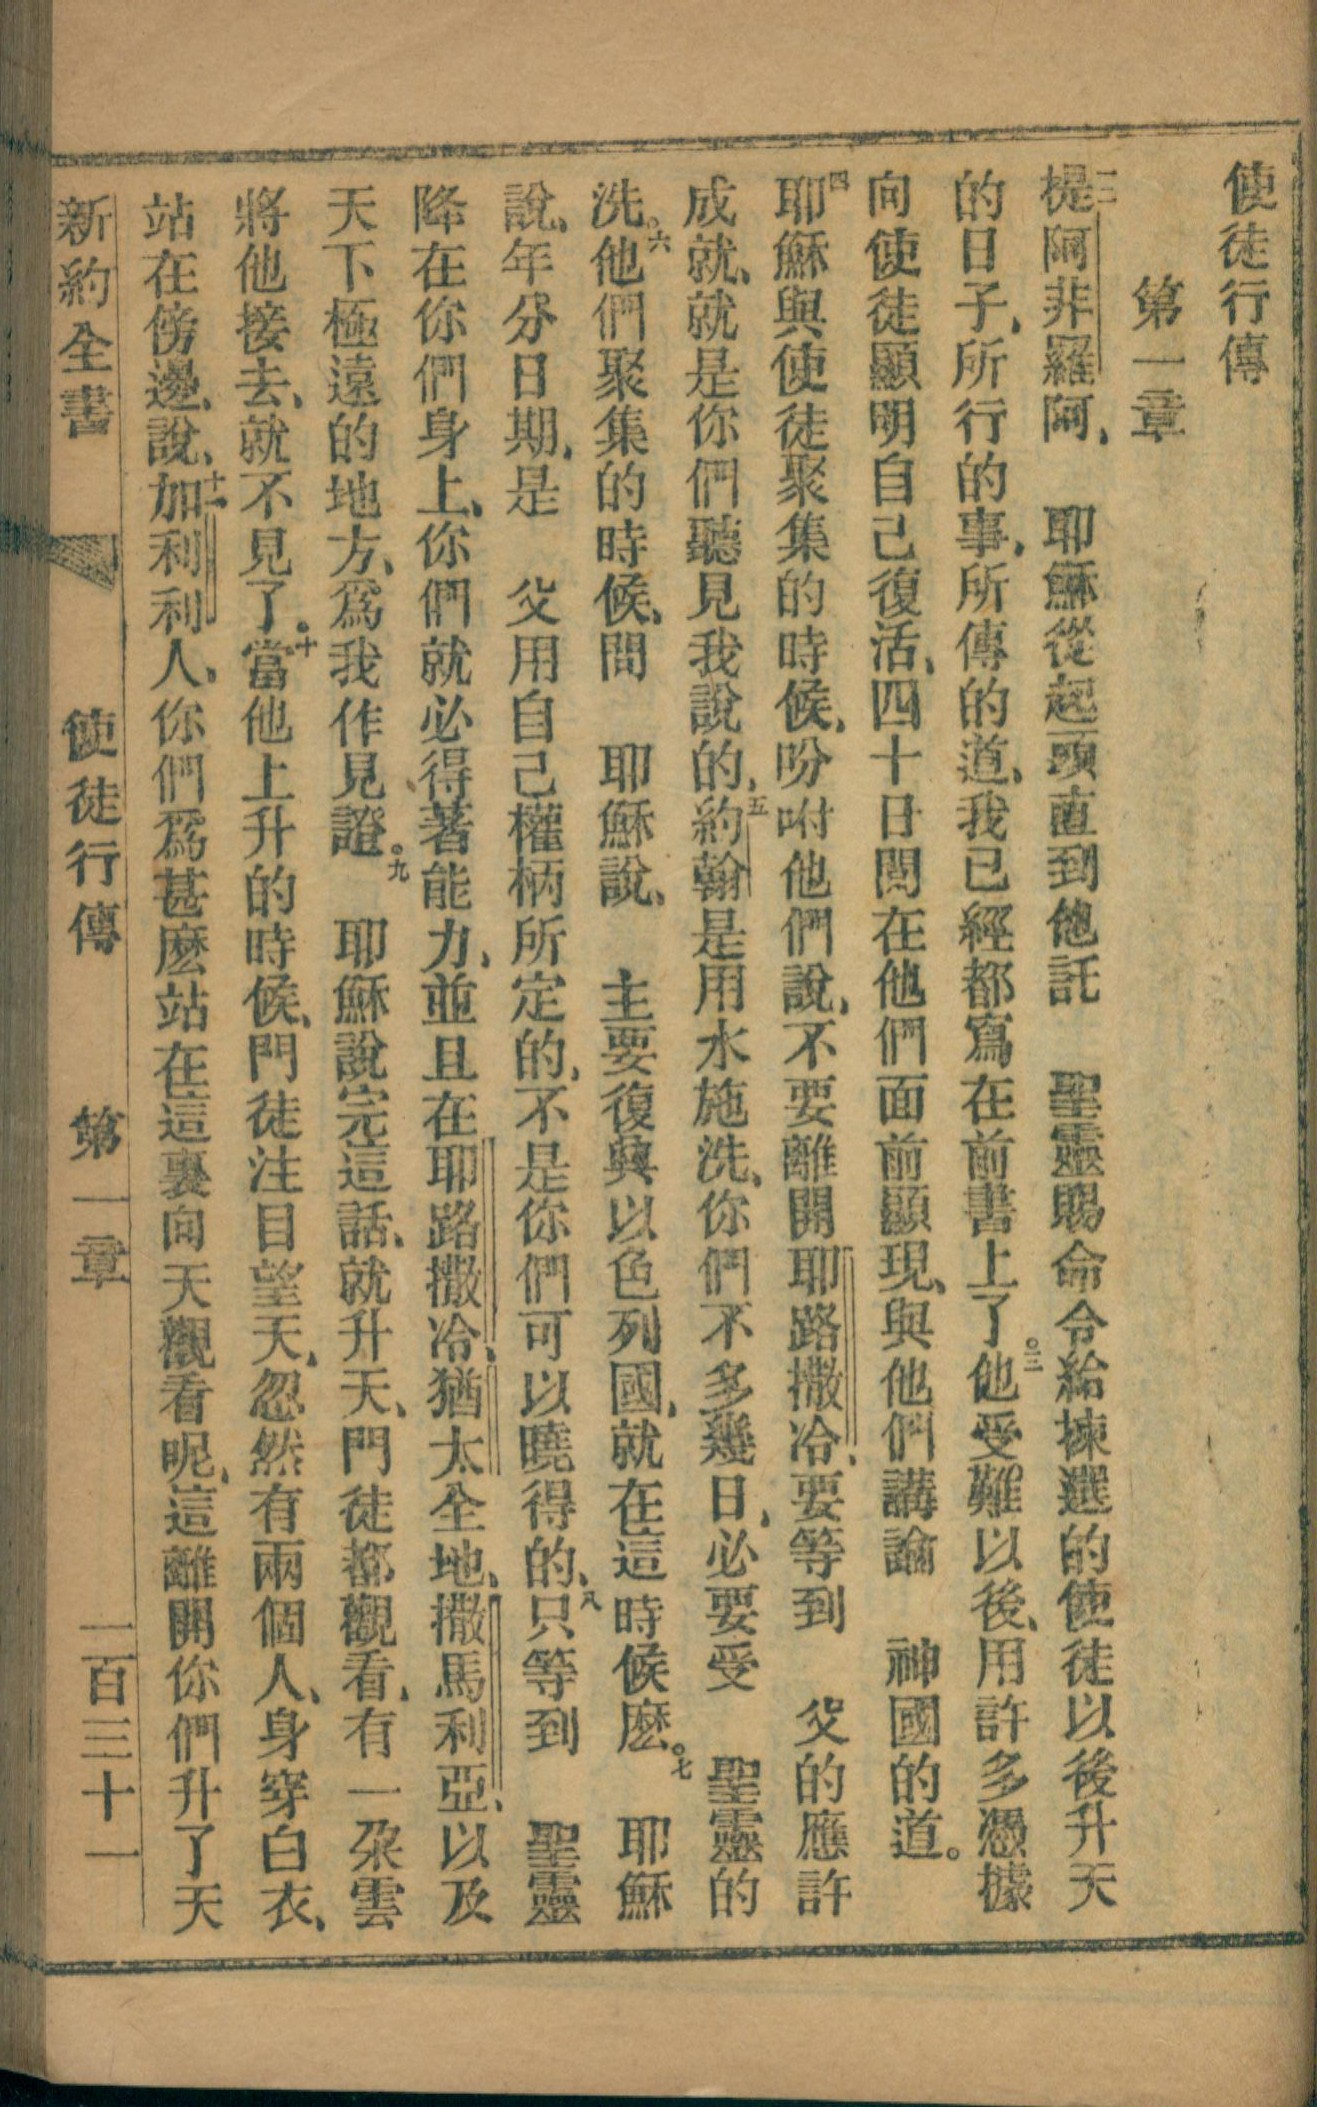 使徒行傳
第一章
一二提阿非羅阿、　耶穌從起頭直到他託　聖靈賜命令給揀選的使徒以後升天
的日子、所行的事、所傳的道、我已經都寫在前書上了。三他受難以後、用許多憑據
向使徒顯明自己復活、四十日間在他們面前顯現、與他們講論　神國的道。
四耶穌與使徒聚集的時候、吩咐他們說、不要離開耶路撒冷、要等到　父的應許
成就、就是你們聽見我說的、五約翰是用水施洗、你們不多幾日、必要受　聖靈的
洗。六他們聚集的時候、問　耶穌說、　主要復興以色列國、就在這時候麽。七　耶穌
說、年分日期、是　父用自己權柄所定的、不是你們可以曉得的、八只等到　聖靈
降在你們身上、你們就必得著能力、並且在耶路撒冷、猶太全地、撒馬利亞、以及
天下極遠的地方、爲我作見證。九　耶穌說完這話、就升天、門徒都觀看、有一朶雲
將他接去、就不見了。十當他上升的時候、門徒注目望天、忽然有兩個人、身穿白衣、
站在傍邊、說、十一加利利人、你們爲甚麽站在這裏向天觀看呢、這離開你們升了天
新約全書　使徒行傳　第一章　一百三十一